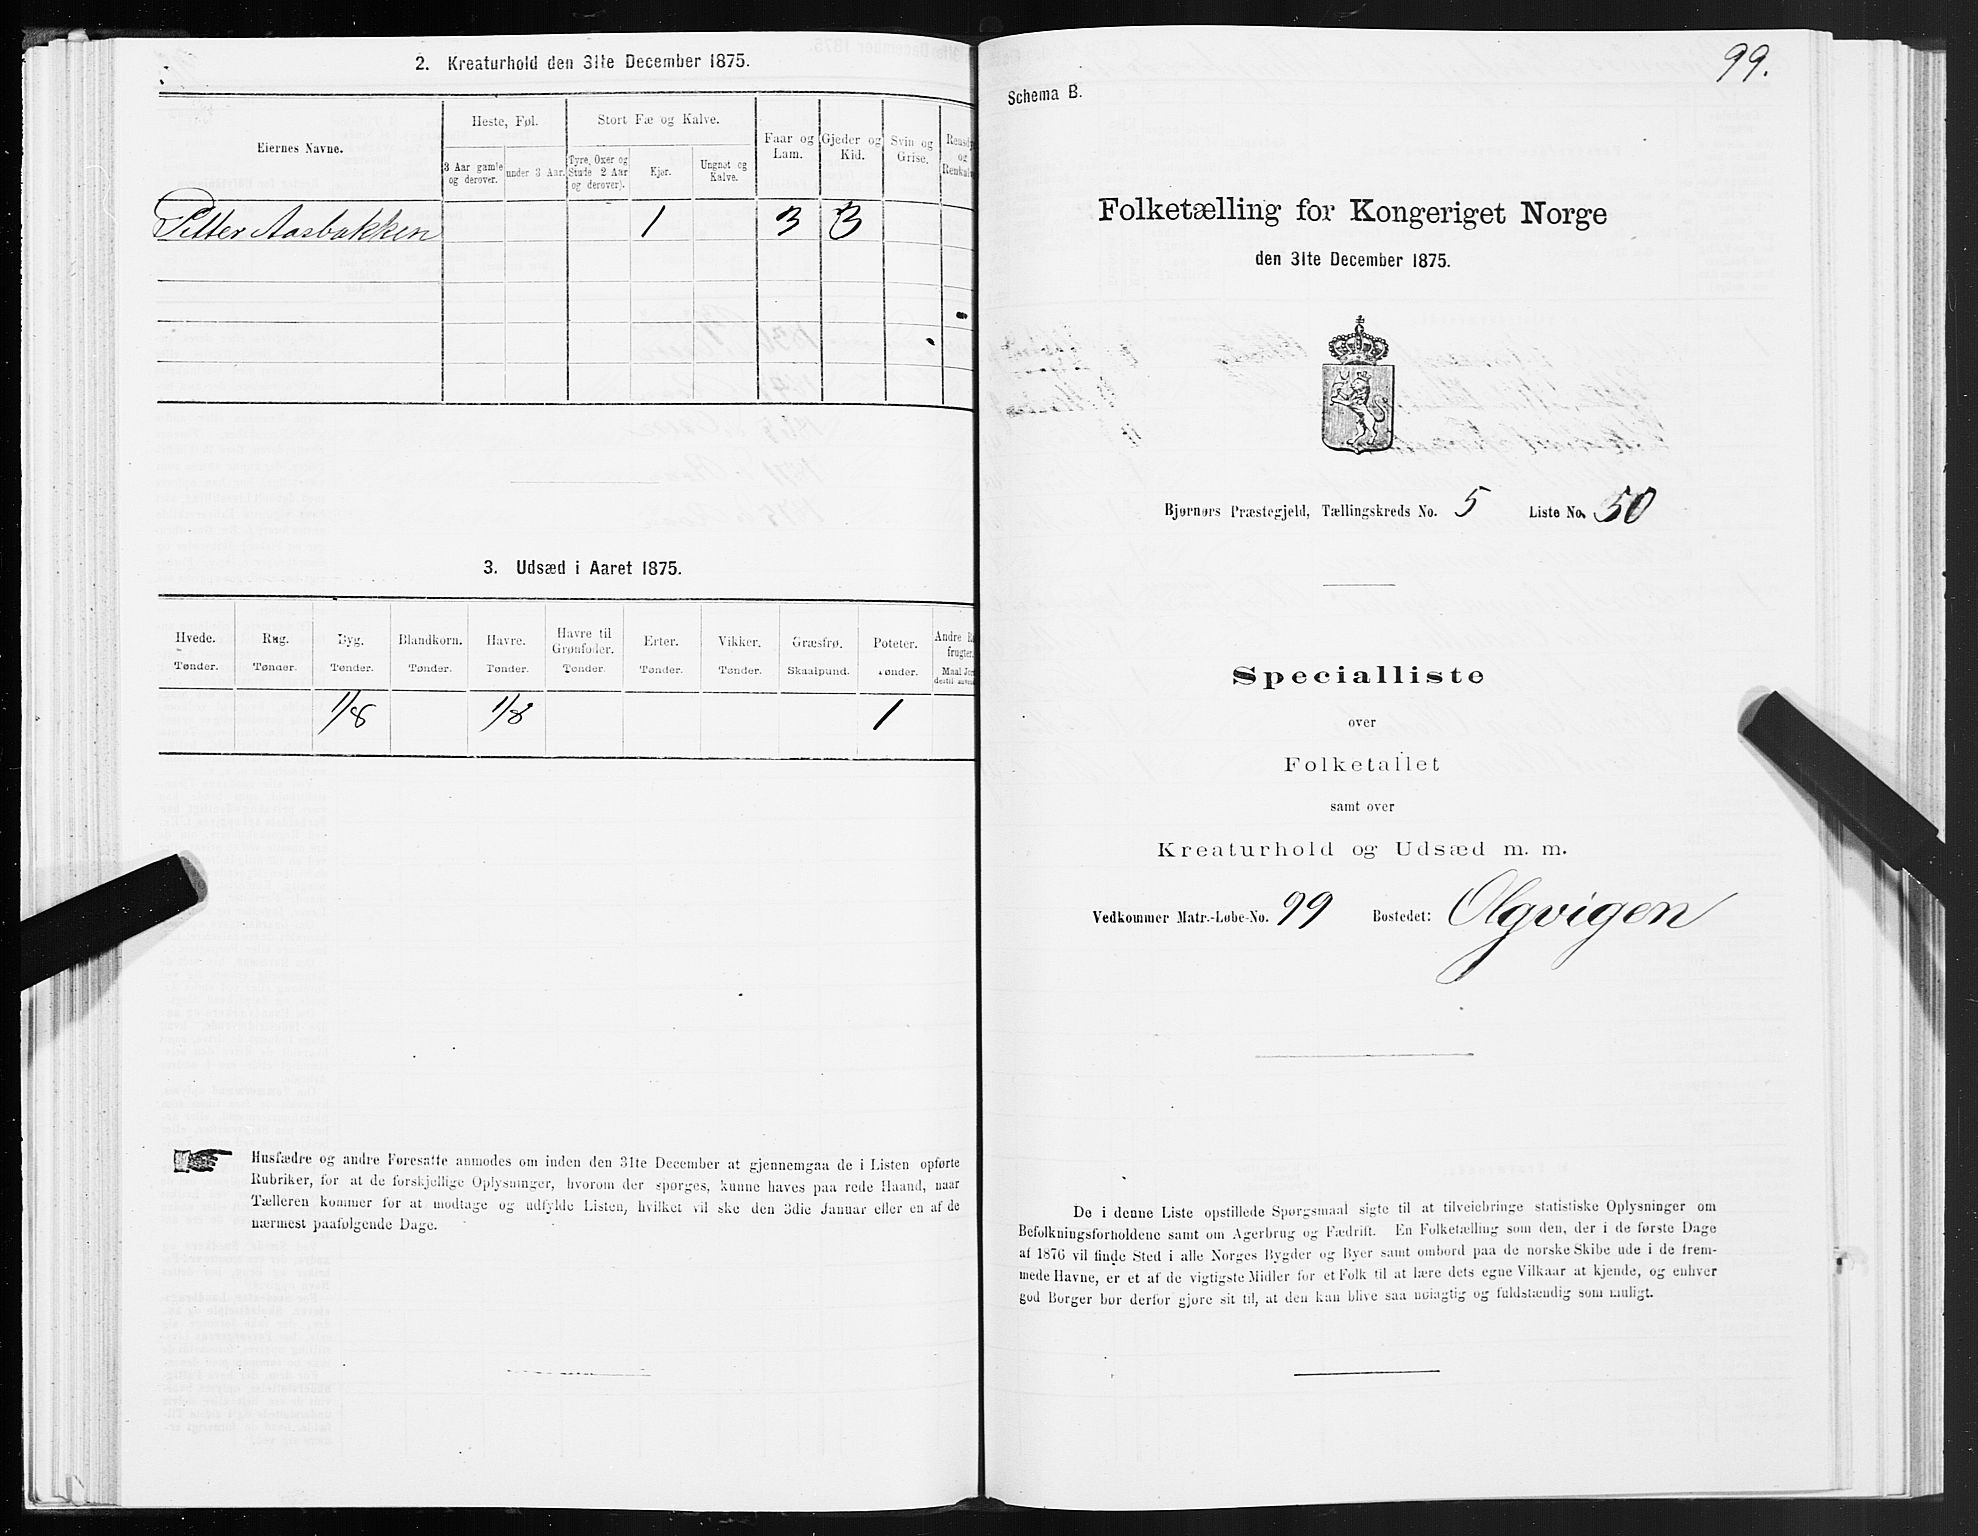 2. Kreaturhold den 31te December 1875.
Eiernes Navne.
Heste, Føl.
Stort Fæ og Kalve.
Faar og Lam.
Gjeder og Kid.
Svin og Grise.
og
3 Aar gamle og derover.
under 3 Aar.
Tyre, Oxer og Stude 2 Aar og derover).
Kjør.
Ungnøt og Kalve.
Petter Aasbakken 1 3 3
3. Udsæd i Aaret 1875.
Hvede. Rug. Byg. Blandkorn. Havre. Havre til Grønfoder. Erter. Vikker. Græsfrø. Poteter. Andre
Tønder. Tønder. Tønder. Tønder. Tønder. Tønder. Tønder. Tønder. Skaalpund. Tønder.
1/8 1/8 1
Husfædre og andre Foresatte anmodes om inden den 31te December at gjennemgaa de i Listen opførte
Rubriker, for at de forskjellige Oplysninger, hvorom der spørges, kunne haves paa rede Haand, naar
Tælleren kommer for at modtage og udfylde Listen, hvilket vil ske den 3die Januar eller en af de
nærmest paafølgende Dage.
99.
Schema B.
Folketælling for Kongeriget Norge
den 31te December 1875.
Bjørnørs Præstegjeld, Tællingskreds No. 5 Liste No. 50
Specialliste
over
Folketallet
samt over
Kreaturhold og Udsæd m. m.
Vedkommer Matr.-Løbe-No. 99 Bostedet: Olgvigen
De i denne Liste opstillede Spørgsmaal sigte til at tilveiebringe statistiske Oplysninger om
Befolkningsforholdene samt om Agerbrug og Fædrift. En Folketælling som den, der i de første Dage
af 1876 vil finde Sted i alle Norges Bygder og Byer samt ombord paa de norske Skibe ude i de frem-
mede Havne, er et af de vigtigste Midler for et Folk til at lære dets egne Vilkaar at kjende, og enhver
god Borger bør derfor gjøre sit til, at den kan blive saa nøiagtig og fuldstændig som muligt.